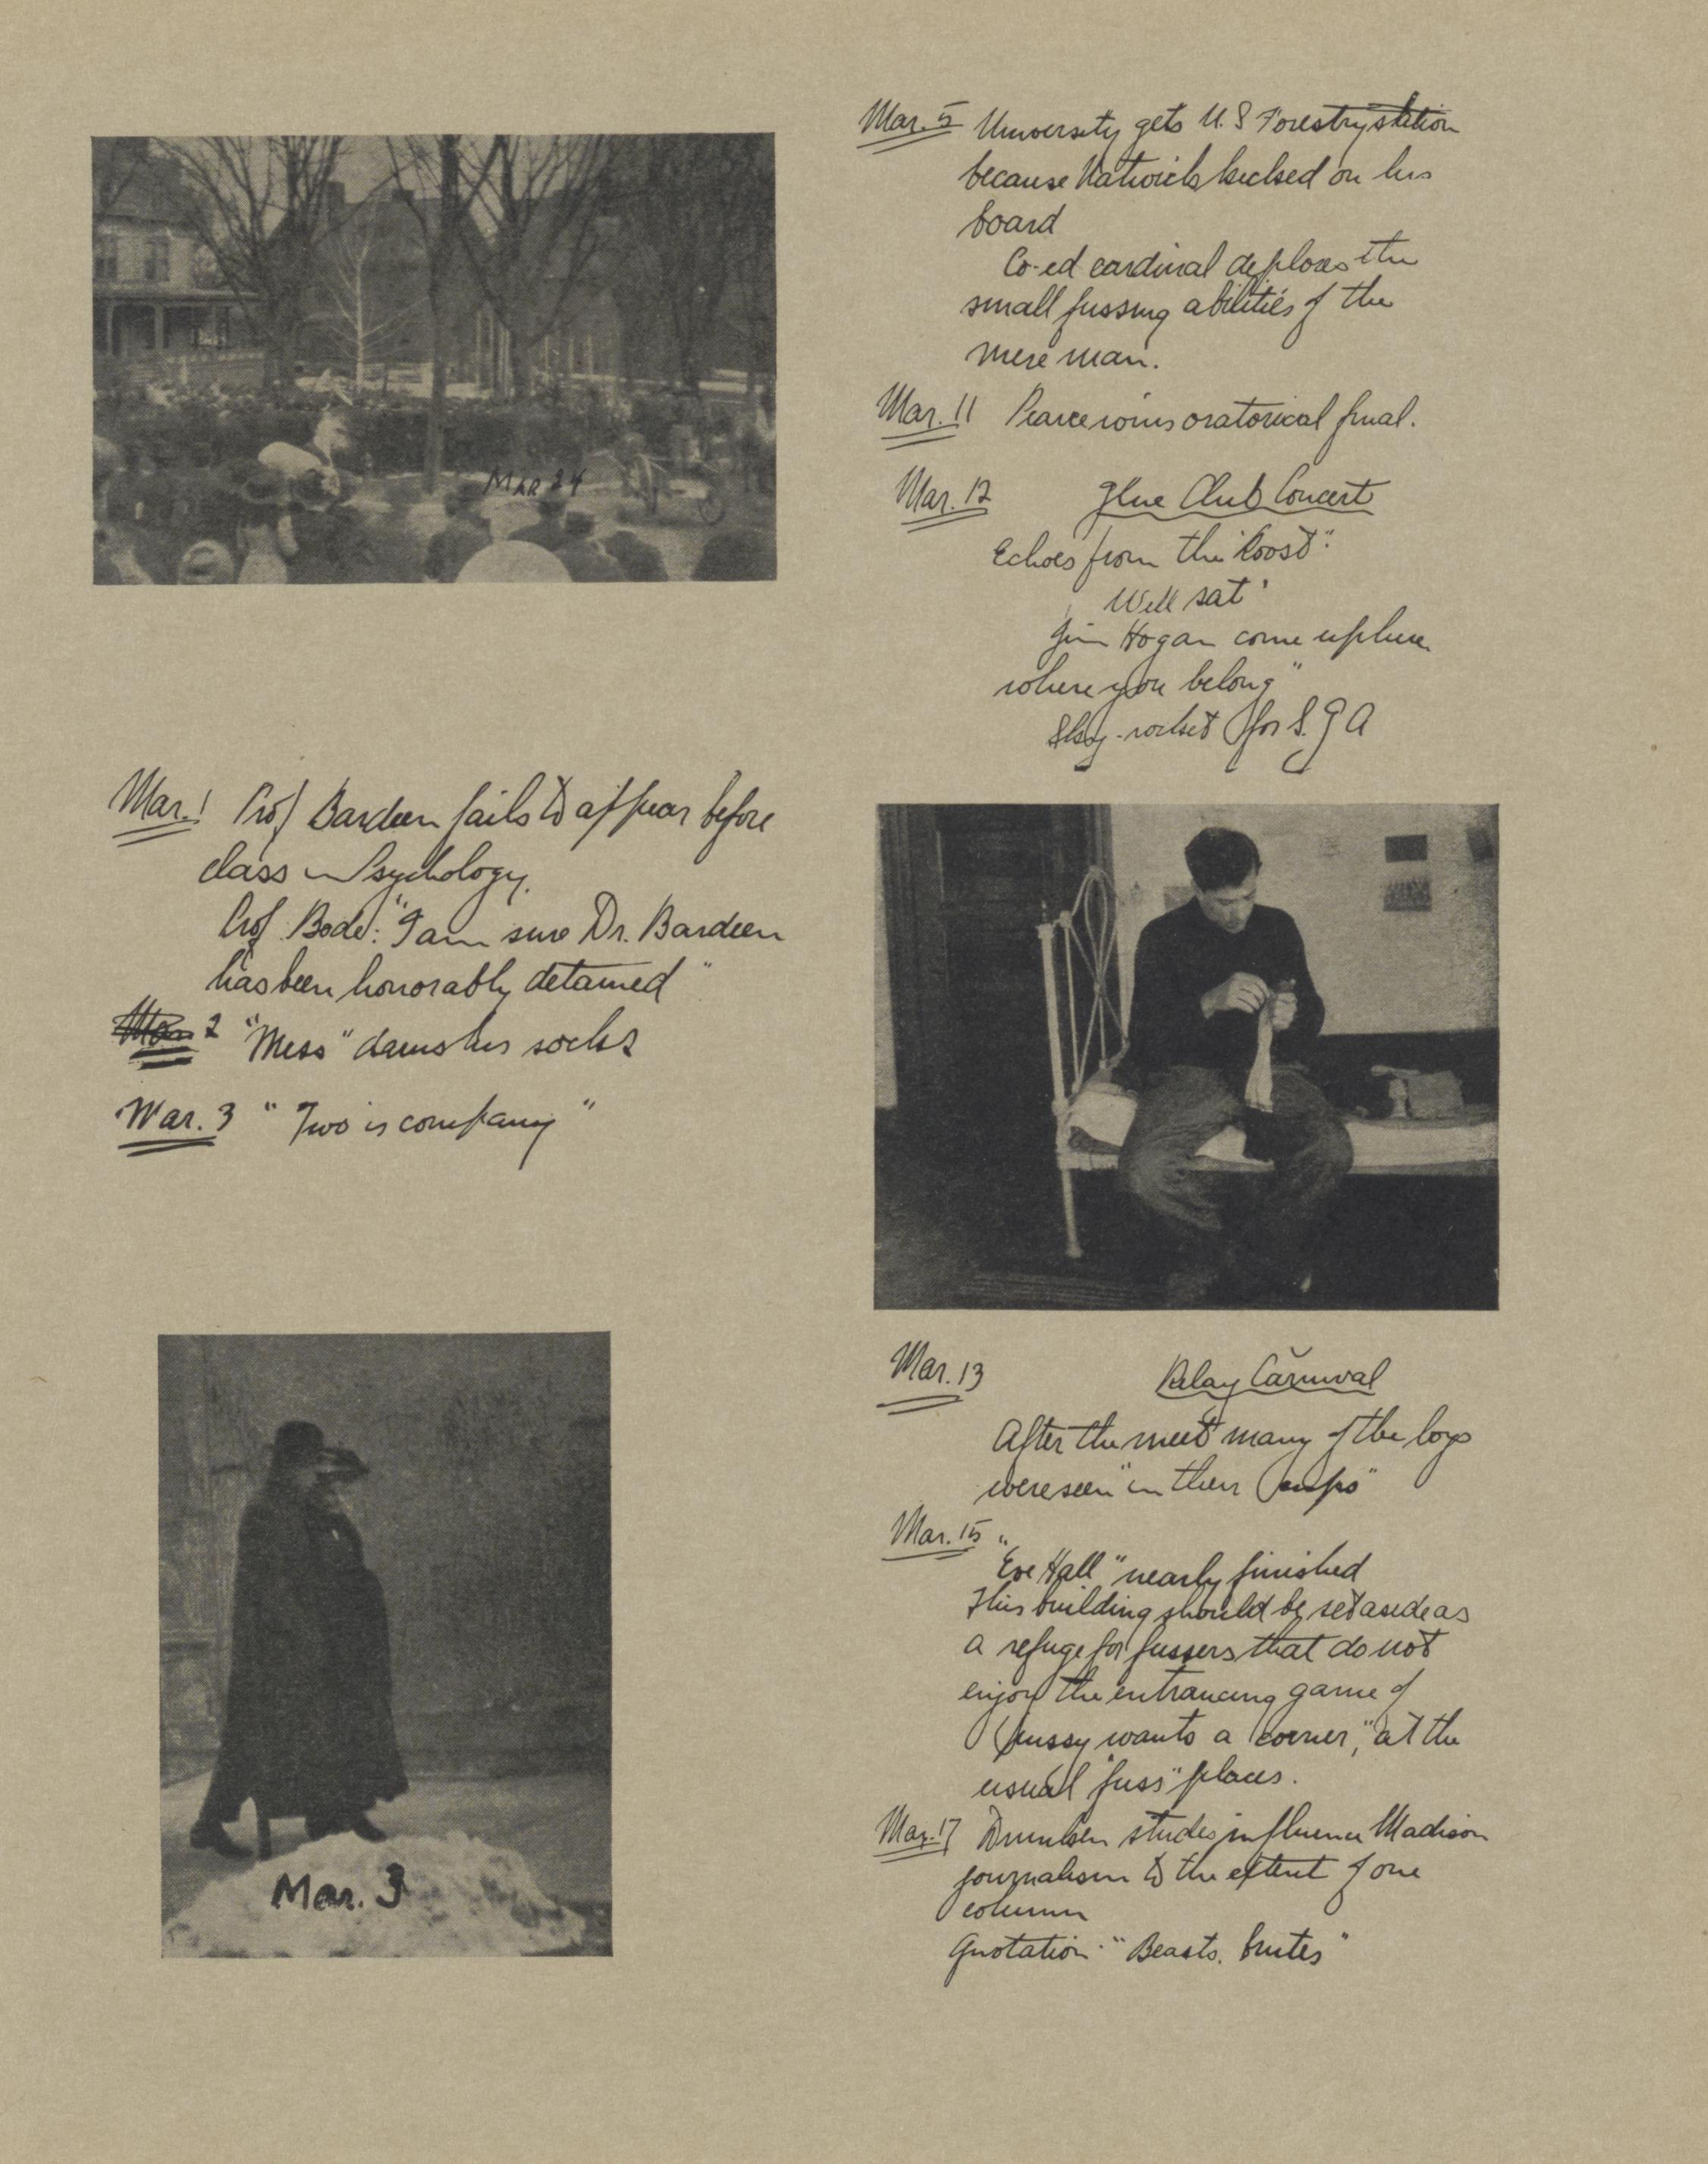 MAR 24
Mar. 1 Prof Bardeen fails to appear before
class in Psychology.
Prof. Bode: "I am sure Dr. Bardeen
has been honorably detained"
Mar 2 "Mess" darns his socks
Mar. 3 "Two is company"
Mar. 3
Mar. 5 University gets U.S Forestry station
because Natwick kicked on his
board
Co-ed cardinal deplores the
small fussing abilities of the
mere man.
Mar. 11 Pearce wins oratorical final.
Mar. 12 Glue Club Concert
Echoes from the "Roost":
Well sat'
Jim Hogan come up here
where you belong"
Sky-rocket for S. G A
Mar. 13 Relay Carnival
After the meet many of the boys
were seen "in their cups"
Mar. 15 "
Eve Hall" nearly finished
This building should be set aside as
a refuge for fussers that do not
enjoy the entrancing game of
"pussy wants a corner," at the
usual "fuss" places.
Mar. 17 Drunken studes influence Madison
journalism to the extent of one
column
Quotation: "Beasts. brutes"